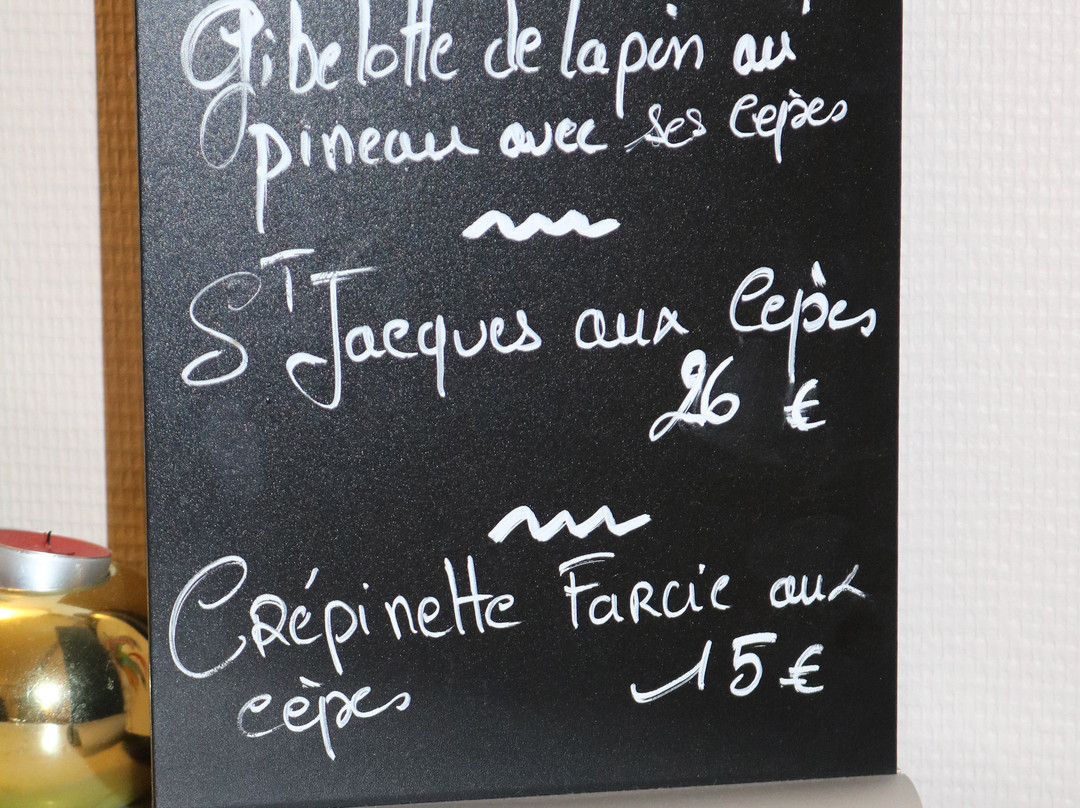 Gibelotte de lapin au
pineau avec ses Cepès
St Jacques aux Cepès
26 €
Crépinette Farcie aux
cèpes 15 €